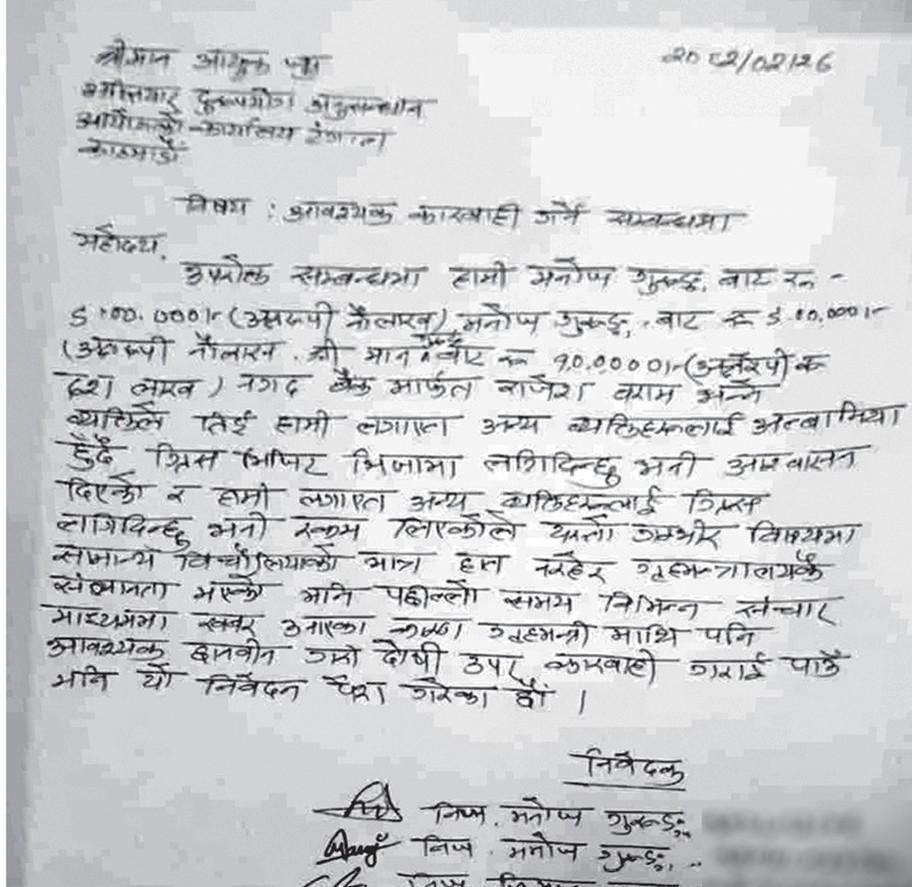 श्रीमान आयुक्त ज्यू
20८२/02/26
अख्तियार दुरुपयोग अनुसन्धान
आयोगको कार्यालय टंगाल
काठमाडौं
विषय : आवश्यक कारवाही गर्ने सम्बन्धमा
महोदय,
उपरोक्त सम्बन्धमा हामी मनोज गुरुङ, बाट रु -
(अक्षरुपी नौलाख) मनोज गुरुङ, बाट रु
(अक्षरुपी नौलाख, श्री मान गुरुङ बाट रु 10,00000।-(अक्षेरुपी) रु
दश लाख) नगद बैंक मार्फत राजेश भन्ने
व्यक्तिले लिई हामी लगाएत अन्य व्यक्तिहरुलाई अल्बानिया
हुँदै ग्रिस भिजिट भिजामा लगिदिन्छु भनी आश्वासन
दिएको र हामी लगाएत अन्य व्यक्तिहरुलाई ग्रिस
लगिदिन्छु भनी रकम लिएकोले यस्तो गम्भीर विषयमा
सामान्य विचौलियाको मात्र हात नरहेर गृहमन्त्रालयकै
संलग्नता भएको भनि पछिल्लो समय विभिन्न संचार
माध्यममा खबर आएका गृहमन्त्री माथि पनि
आवश्यक छानवीन गरी दोषी उपर कारवाही गराई पाउँ
भनि यो निवेदन पेश गरेका छौं ।
निवेदक
निज. मनोज गुरुङ
निज मनोज गुरुङ
निज